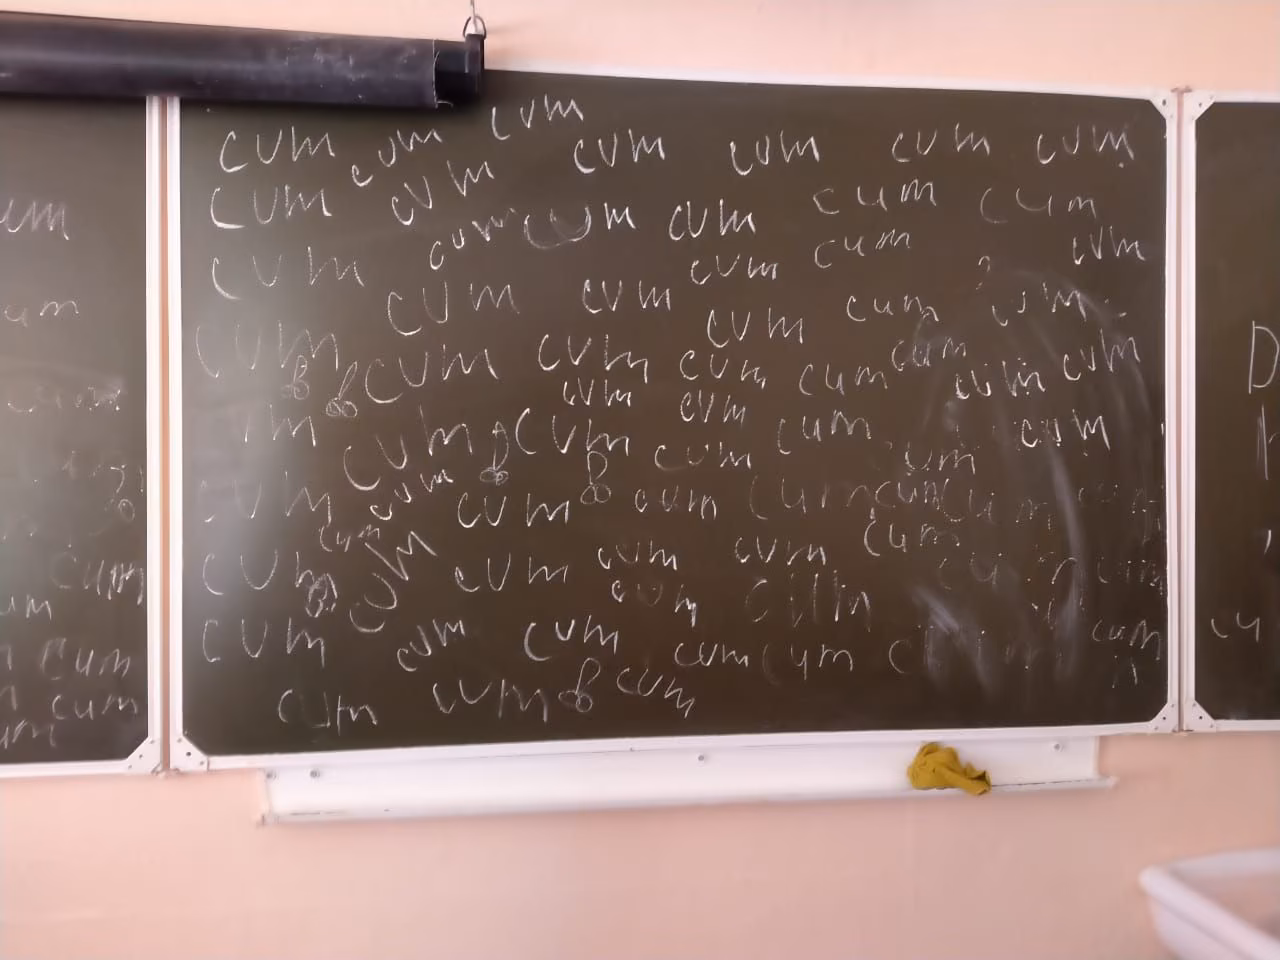 cum cum cum cum cum cum cum
cum cum cum cum
um cum cum cum cum
cum cum cum cum
cum cum cum cum cum
um cum cum cum
cum cum cum cum cum
cum cum cum cum cum
cum cum cum cum cum
cum cum cum
cum cum cum cum
cum cum cum cum cum
cum cum cum cum
cum cum cum cum cum
um cum
cum cum cum cum cum cum
cum cum cum cum
cum cum cum